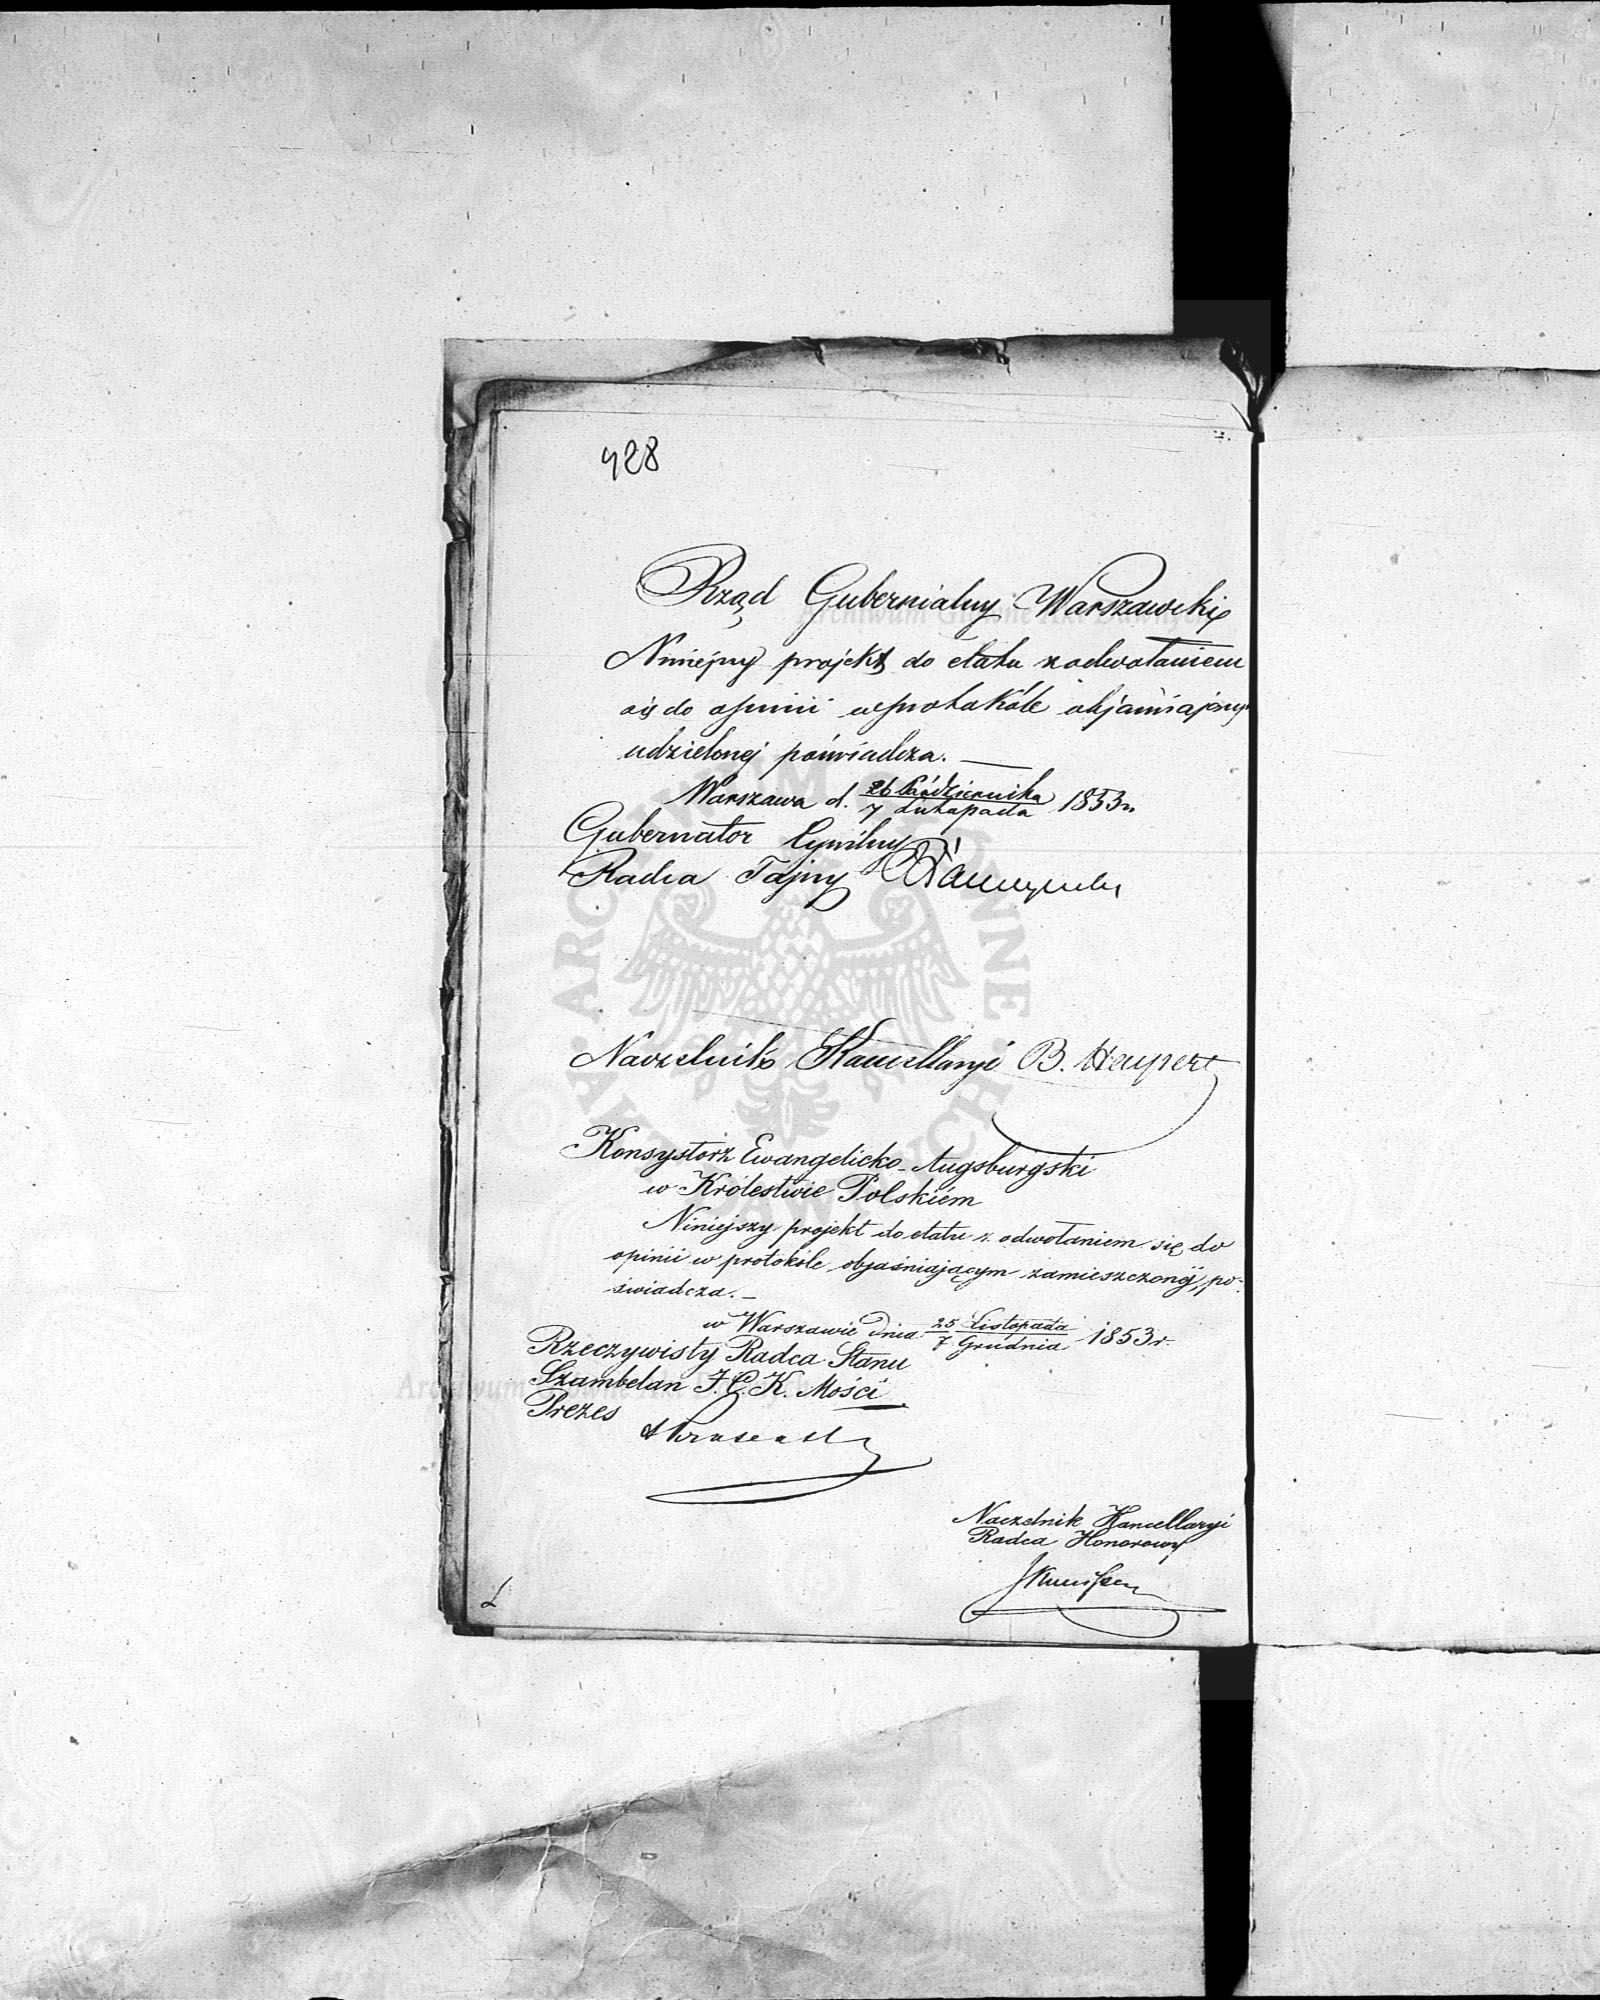 428
Rząd Gubernialny Warszawski
Niniejszy projekt do etatu z odwołaniem
się do opinii w protokóle objaśniającym
udzielonej poświadcza. —
Warszawa d. 26 Października / 7 Listopada 1853 r.
Gubernator Cywilny
Radca Tajny
Naczelnik Kancellaryi B. Heupert
Konsystorz Ewangelicko-Augsburgski
w Królestwie Polskiém
Niniejszy projekt do etatu z odwołaniem się do
opinii w protokóle objaśniającym zamieszczonéj, po-
świadcza. —
w Warszawie dnia 25 Listopada / 7 Grudnia 1853 r.
Rzeczywisty Radca Stanu
Szambelan J. C. K. Mości
Prezes
Naczelnik Kancellaryi
Radca Honorowy